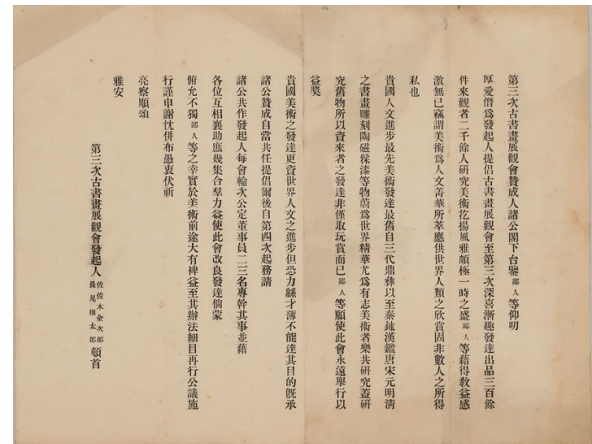 第三次古書畫展觀會贊成人諸公閣下台鑒鄙人等仰叨
厚愛僭爲發起人提倡古書畫展觀會至第三次深喜漸趣發達出品三百餘
件來觀者二千餘人研究美術扢揚風雅頗極一時之盛鄙人等藉得敎益感
激無已竊謂美術爲人文菁華所萃應供世界人類之欣賞固非數人之所得
私也
貴國人文進步最先美術發達最舊自三代鼎彝以至秦鉥漢鑑唐宋元明淸
之書畫雕刻陶磁髹漆等物蔚爲世界精華尤爲有志美術者樂共研究蓋研
究舊物所以資來者之發達非僅取玩賞而已鄙人等願使此會永遠舉行以
益奬
貴國美術之發達更資世界人文之進步但恐力緜才薄不能達其目的旣承
諸公贊成自當共任提倡爾後自第四次起務請
諸公共作發起人每會輪次公定董事員二三名專幹其事並藉
各位互相襄助庶幾集合羣力益使此會改良發達倘蒙
俯允不獨鄙人等之幸實於美術前途大有裨益至其辦法細目再行公議施
行謹申謝忱併布愚衷伏祈
亮察順頌
雅安
第三次古書畫展觀會發起人 佐佐木金次郎
長尾槇太郎 頓首